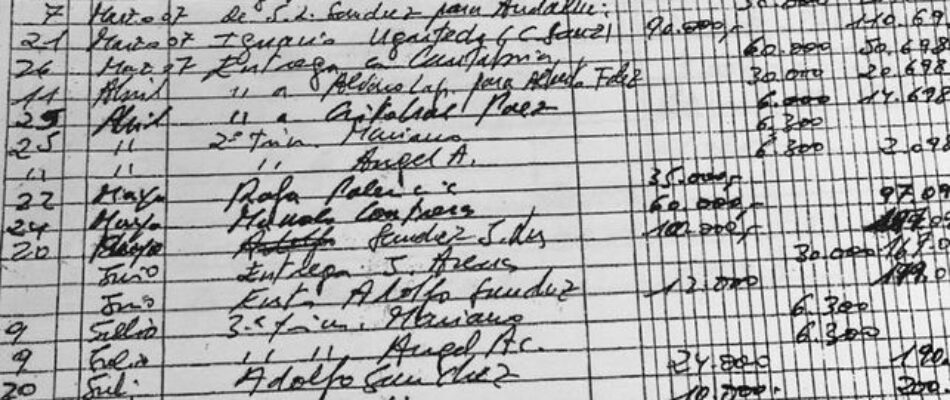 7 Marzo 07 de S.L. Sanchez para Andaluc. 110.698
21 Marzo 07 Ignacio Ugarteche (C Sanz) 90.000,-
26 Marzo 07 Entrega a Cantabria 60.000 50.698
11 Abril " a para Alfredo Fdez 30.000 20.698
25 Abril " a Cristobal Paez 6.000 14.698
25 " 2º trim. Mariano 6.300
" " " Angel A. 6.300 2.098
22 Mayo Rafa 35.000,-
24 Mayo Manuel Contreras 60.000,- 97.09
20 Mayo Sanchez J. Luis 100.000,-
Junio Entrega J. Arenas 30.000 167.0
Junio Entr. Adolfo Sanchez 12.000 179.0
9 Julio 3º trim. Mariano 6.300
9 Julio " " Angel Ac. 6.300
20 Jul. Adolfo Sanchez 24.000 190.
10.000. 200.